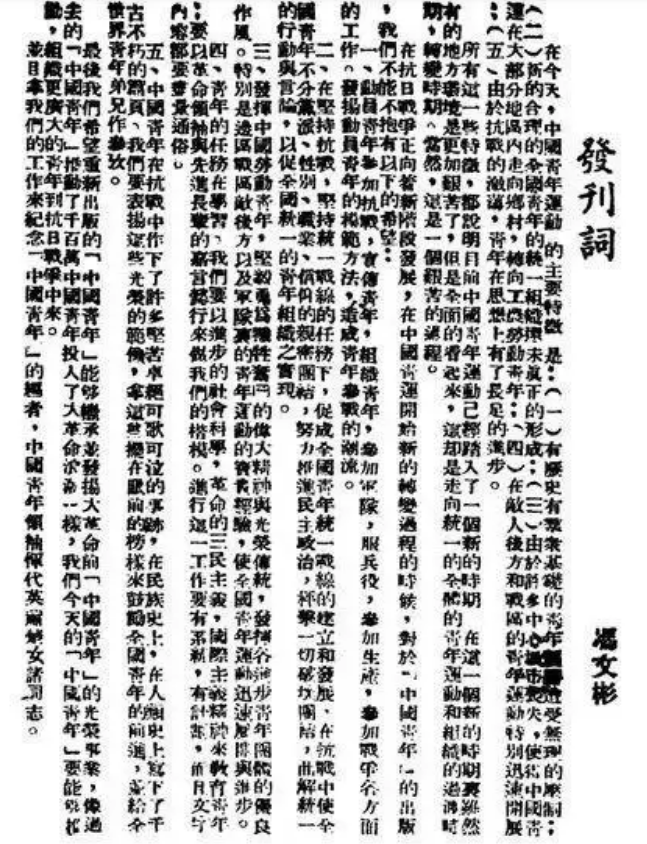 發刊詞
馮文彬
在今天，中國青年運動的主要特徵是：（一）有歷史有羣衆基礎的青年遭受無理的壓制；
（二）新的合理的全國青年的統一組織還未眞正的形成；（三）由於許多中心城市喪失，使得中國靑
運在大部分地區內走向鄉村，轉向工農勞動青年；（四）在敵人後方和戰區的青年運動特別迅速開展
；（五）由於抗戰的激盪，青年在思想上有了長足的進步。
所有這一些特徵，都說明目前中國青年運動已經踏入了一個新的時期 在這一個新的時期裏雖然
有的地方環境是更加艱苦了，但是全面的看起來，這却是走向統一的全體的青年運動和組織的過渡時
期，轉變時期。當然，這是一個艱苦的過程。
在抗日戰爭正向着新階段發展，在中國青運開始新的轉變過程的時候，對於「中國青年」的出版
，我們不能不抱有以下的希望：
一、動員青年參加抗戰，宣傳青年，組織青年，參加軍隊，服兵役，參加生產，參加戰爭各方面
的工作。發揚動員青年的模範方法，造成青年參戰的潮流。
二、在堅持抗戰，堅持統一戰線的任務下，促成全國青年統一戰線的建立和發展、在抗戰中使全
國青年不分黨派、性別、職業、信仰的親密團結，努力推進民主政治，抨擊一切破壞團結，曲解統一
的行動與言論，以促全國統一的青年組織之實現。
三、發揮中國勞動青年，堅毅勇爲犧牲奮鬥的偉大精神與光榮傳統，發揮各進步青年團體的優良
作風。特別是邊區戰區敵後方以及軍隊裏的青年運動的寶貴經驗，使全國青年運動迅速展開與進步。
四、青年的任務在學習、我們要以進步的社會科學，革命的三民主義，國際主義精神來教育青年
；要以革命領袖與先進長輩的嘉言懿行來做我們的楷模。進行這一工作要有系統，有計劃，而且文字
內容都要盡量通俗。
五、中國青年在抗戰中作下了許多堅苦卓絕可歌可泣的事跡，在民族史上，在人類史上寫下了千
古不朽的篇頁、我們要表揚這些光榮的範例，拿這些擺在眼前的榜樣來鼓勵全國青年的前進，並給全
世界青年弟兄作參攷。
最後我們希望重新出版的「中國青年」能够繼承並發揚大革命前「中國青年」的光榮事業，像過
去的「中國青年」推動了千百萬中國青年投入了大革命浪濤一樣，我們今天的「中國青年」要能够推
動，組織更廣大的青年到抗日戰爭中來。
並且拿我們的工作來紀念「中國青年」的編者，中國青年領袖惲代英蕭楚女諸同志。